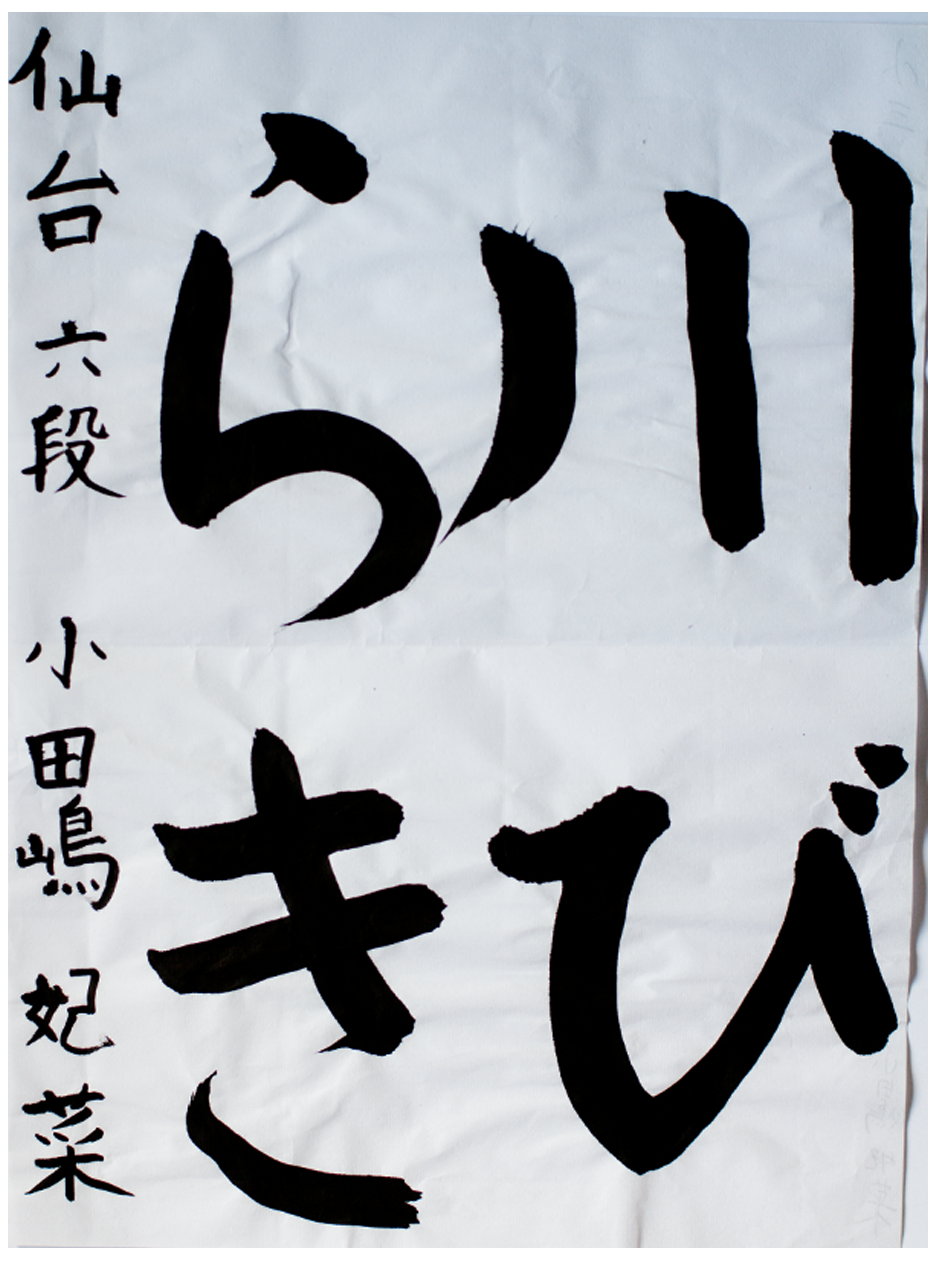 川び
らき
仙台 六段 小田嶋 妃菜